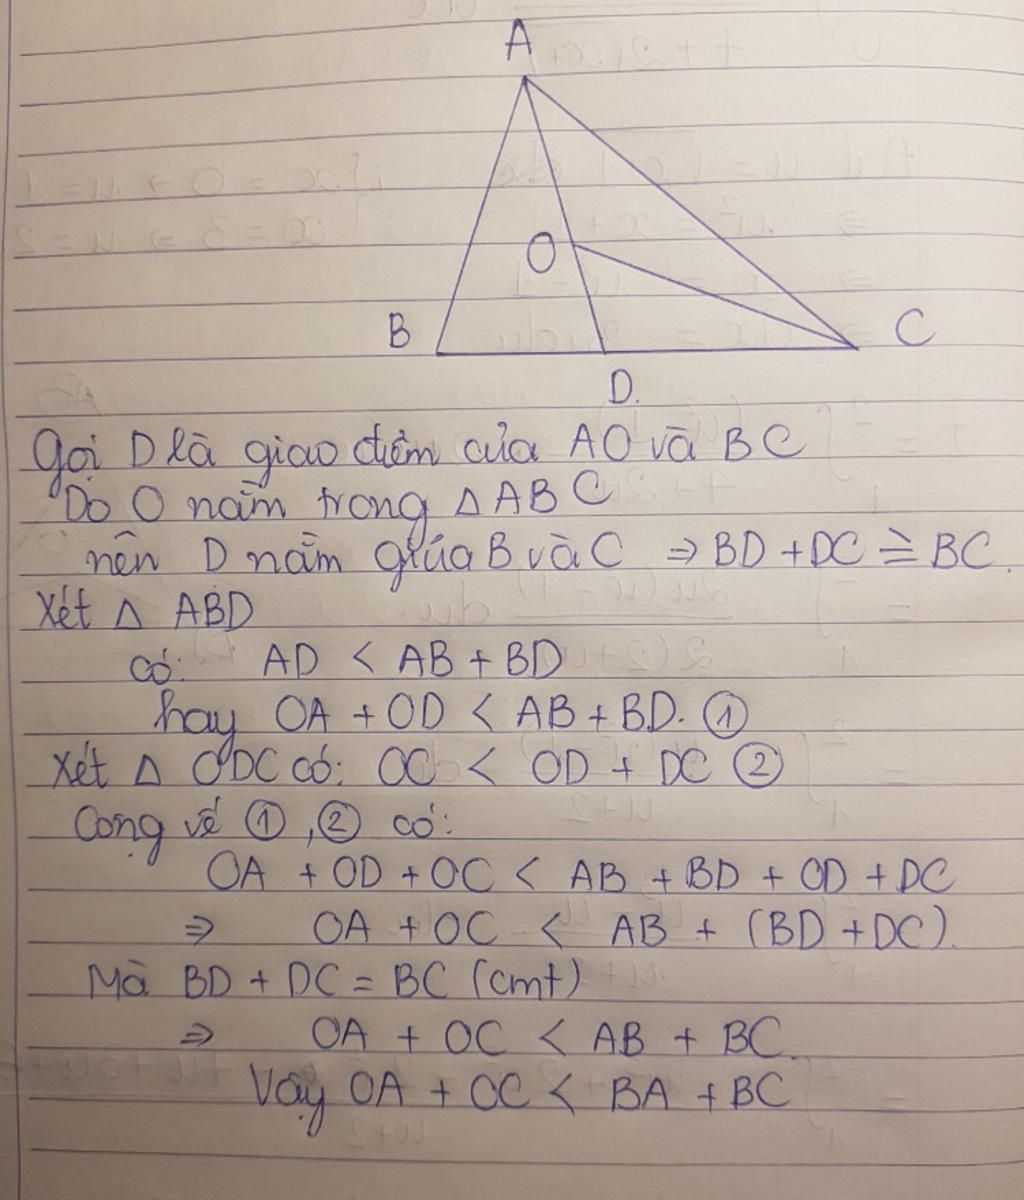 A
O
B
C
D.
Gọi D là giao điểm của AO và BC
Do O nằm trong △ABC
nên D nằm giữa B và C ⇒ BD + DC = BC.
Xét △ ABD
có: AD < AB + BD
hay OA + OD < AB + BD. ①
Xét △ ODC có: OC < OD + DC ②
Cộng vế ①, ② có:
OA + OD + OC < AB + BD + OD + DC
⇒ OA + OC < AB + (BD + DC).
Mà BD + DC = BC (cmt)
⇒ OA + OC < AB + BC.
Vậy OA + OC < BA + BC